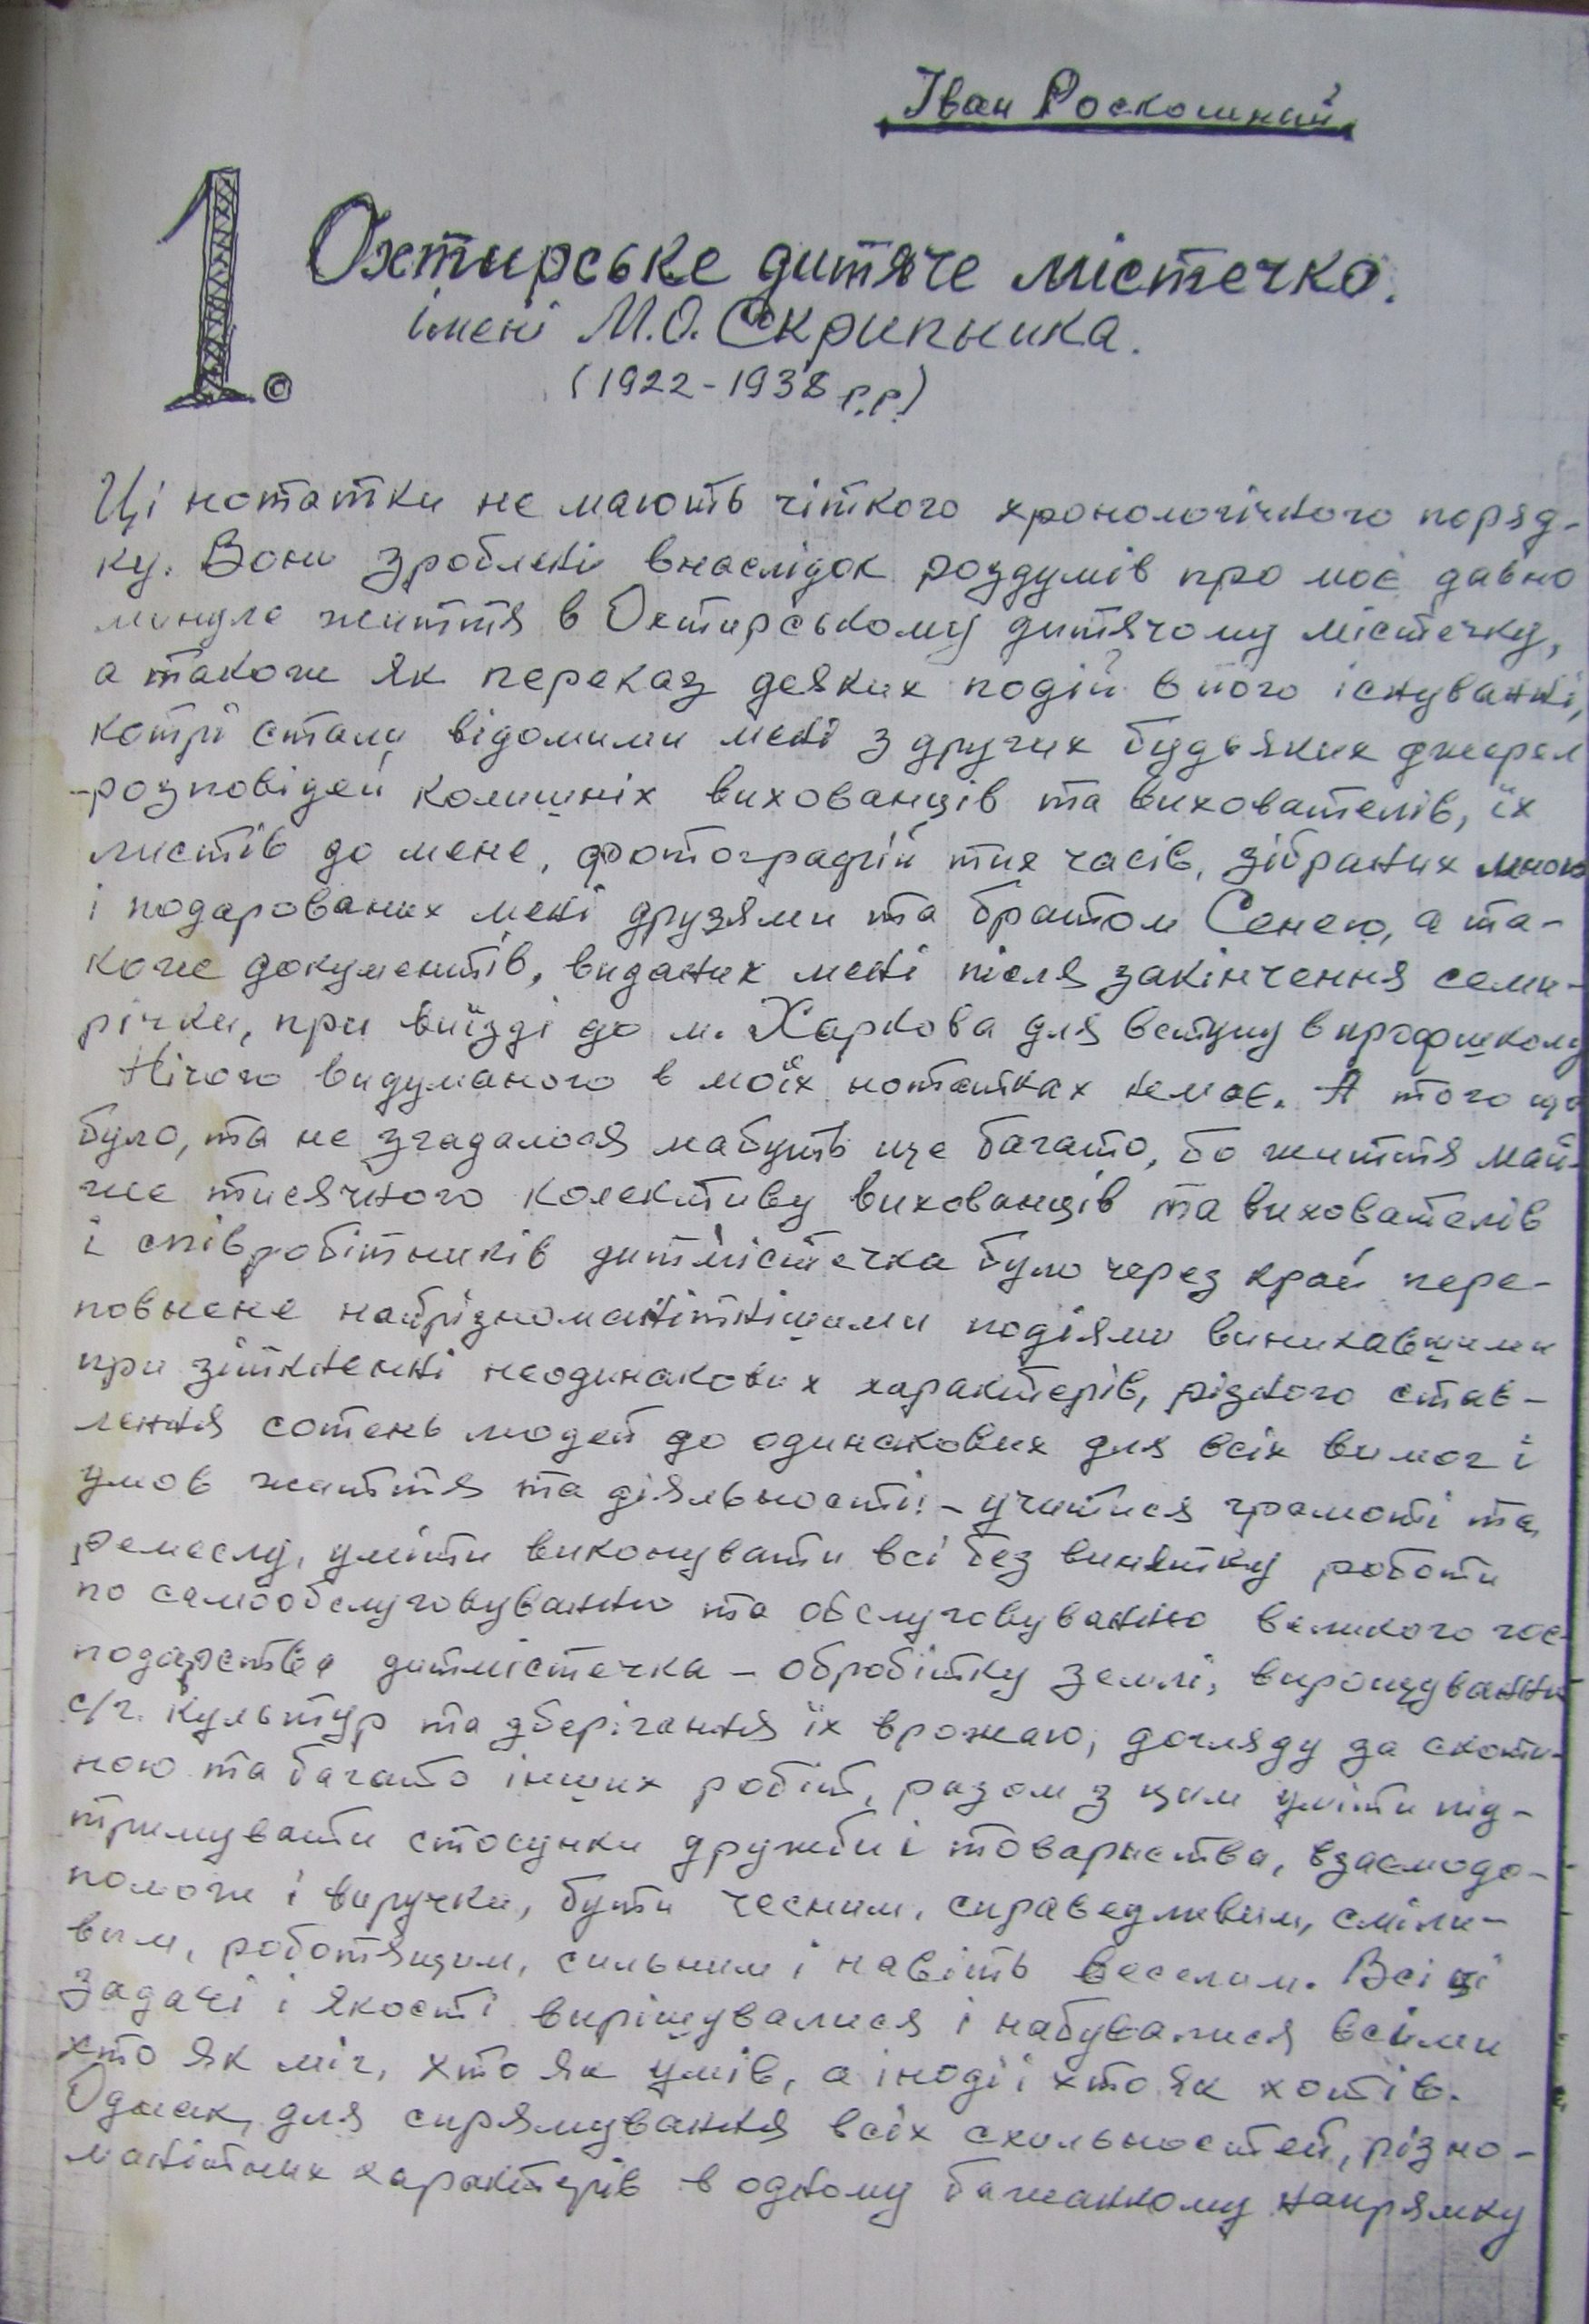 Іван Роскошний
1. Охтирське дитяче містечко.
імені М.О. Скрипника.
(1922-1938 р.р.)
Ці нотатки не мають чіткого хронологічного поряд-
ку. Вони зроблені внаслідок роздумів про моє давно
минуле життя в Охтирському дитячому містечку,
а також як переказ деяких подій в його існуванні,
котрі стали відомими мені з других будьяких джерел
-розповідей колишніх вихованців та вихователів, їх
листів до мене, фотографій тих часів, зібраних мною
і подарованих мені друзями та братом Сенею, а та-
кож документів, виданих мені після закінчення семи-
річки, при виїзді до м. Харкова для вступу в профшколу
Нічого видуманого в моїх нотатках немає. А того що
було, та не згадалося мабуть ще багато, бо життя май-
же тисячного колективу вихованців та вихователів
і співробітників дитмістечка було через край пере-
повнене найрізноманітнішими подіями виникавшими
при зіткненні неодинакових характерів, різного став-
лення сотень людей до одинакових для всіх вимог і
умов життя та діяльності: - учитися грамоті та
ремеслу, уміти виконувати всі без винятку роботи
по самообслуговуванню та обслуговуванню великого гос-
подарства дитмістечка - обробітку землі, вирощуванню
с/г. культур та зберігання їх врожаю, догляду за скоти-
ною та багато інших робіт, разом з цим уміти під-
тримувати стосунки дружби і товариства, взаємодо-
помоги і виручки, бути чесним, справедливим, сміли-
вим, роботящим, сильним і навіть веселим. Всі ці
задачі і якості вирішувалися і набувалися всіми
хто як міг, хто як умів, а іноді і хто як хотів.
Однак, для спрямування всіх схильностей, різно-
манітних характерів в одному бажанному напрямку